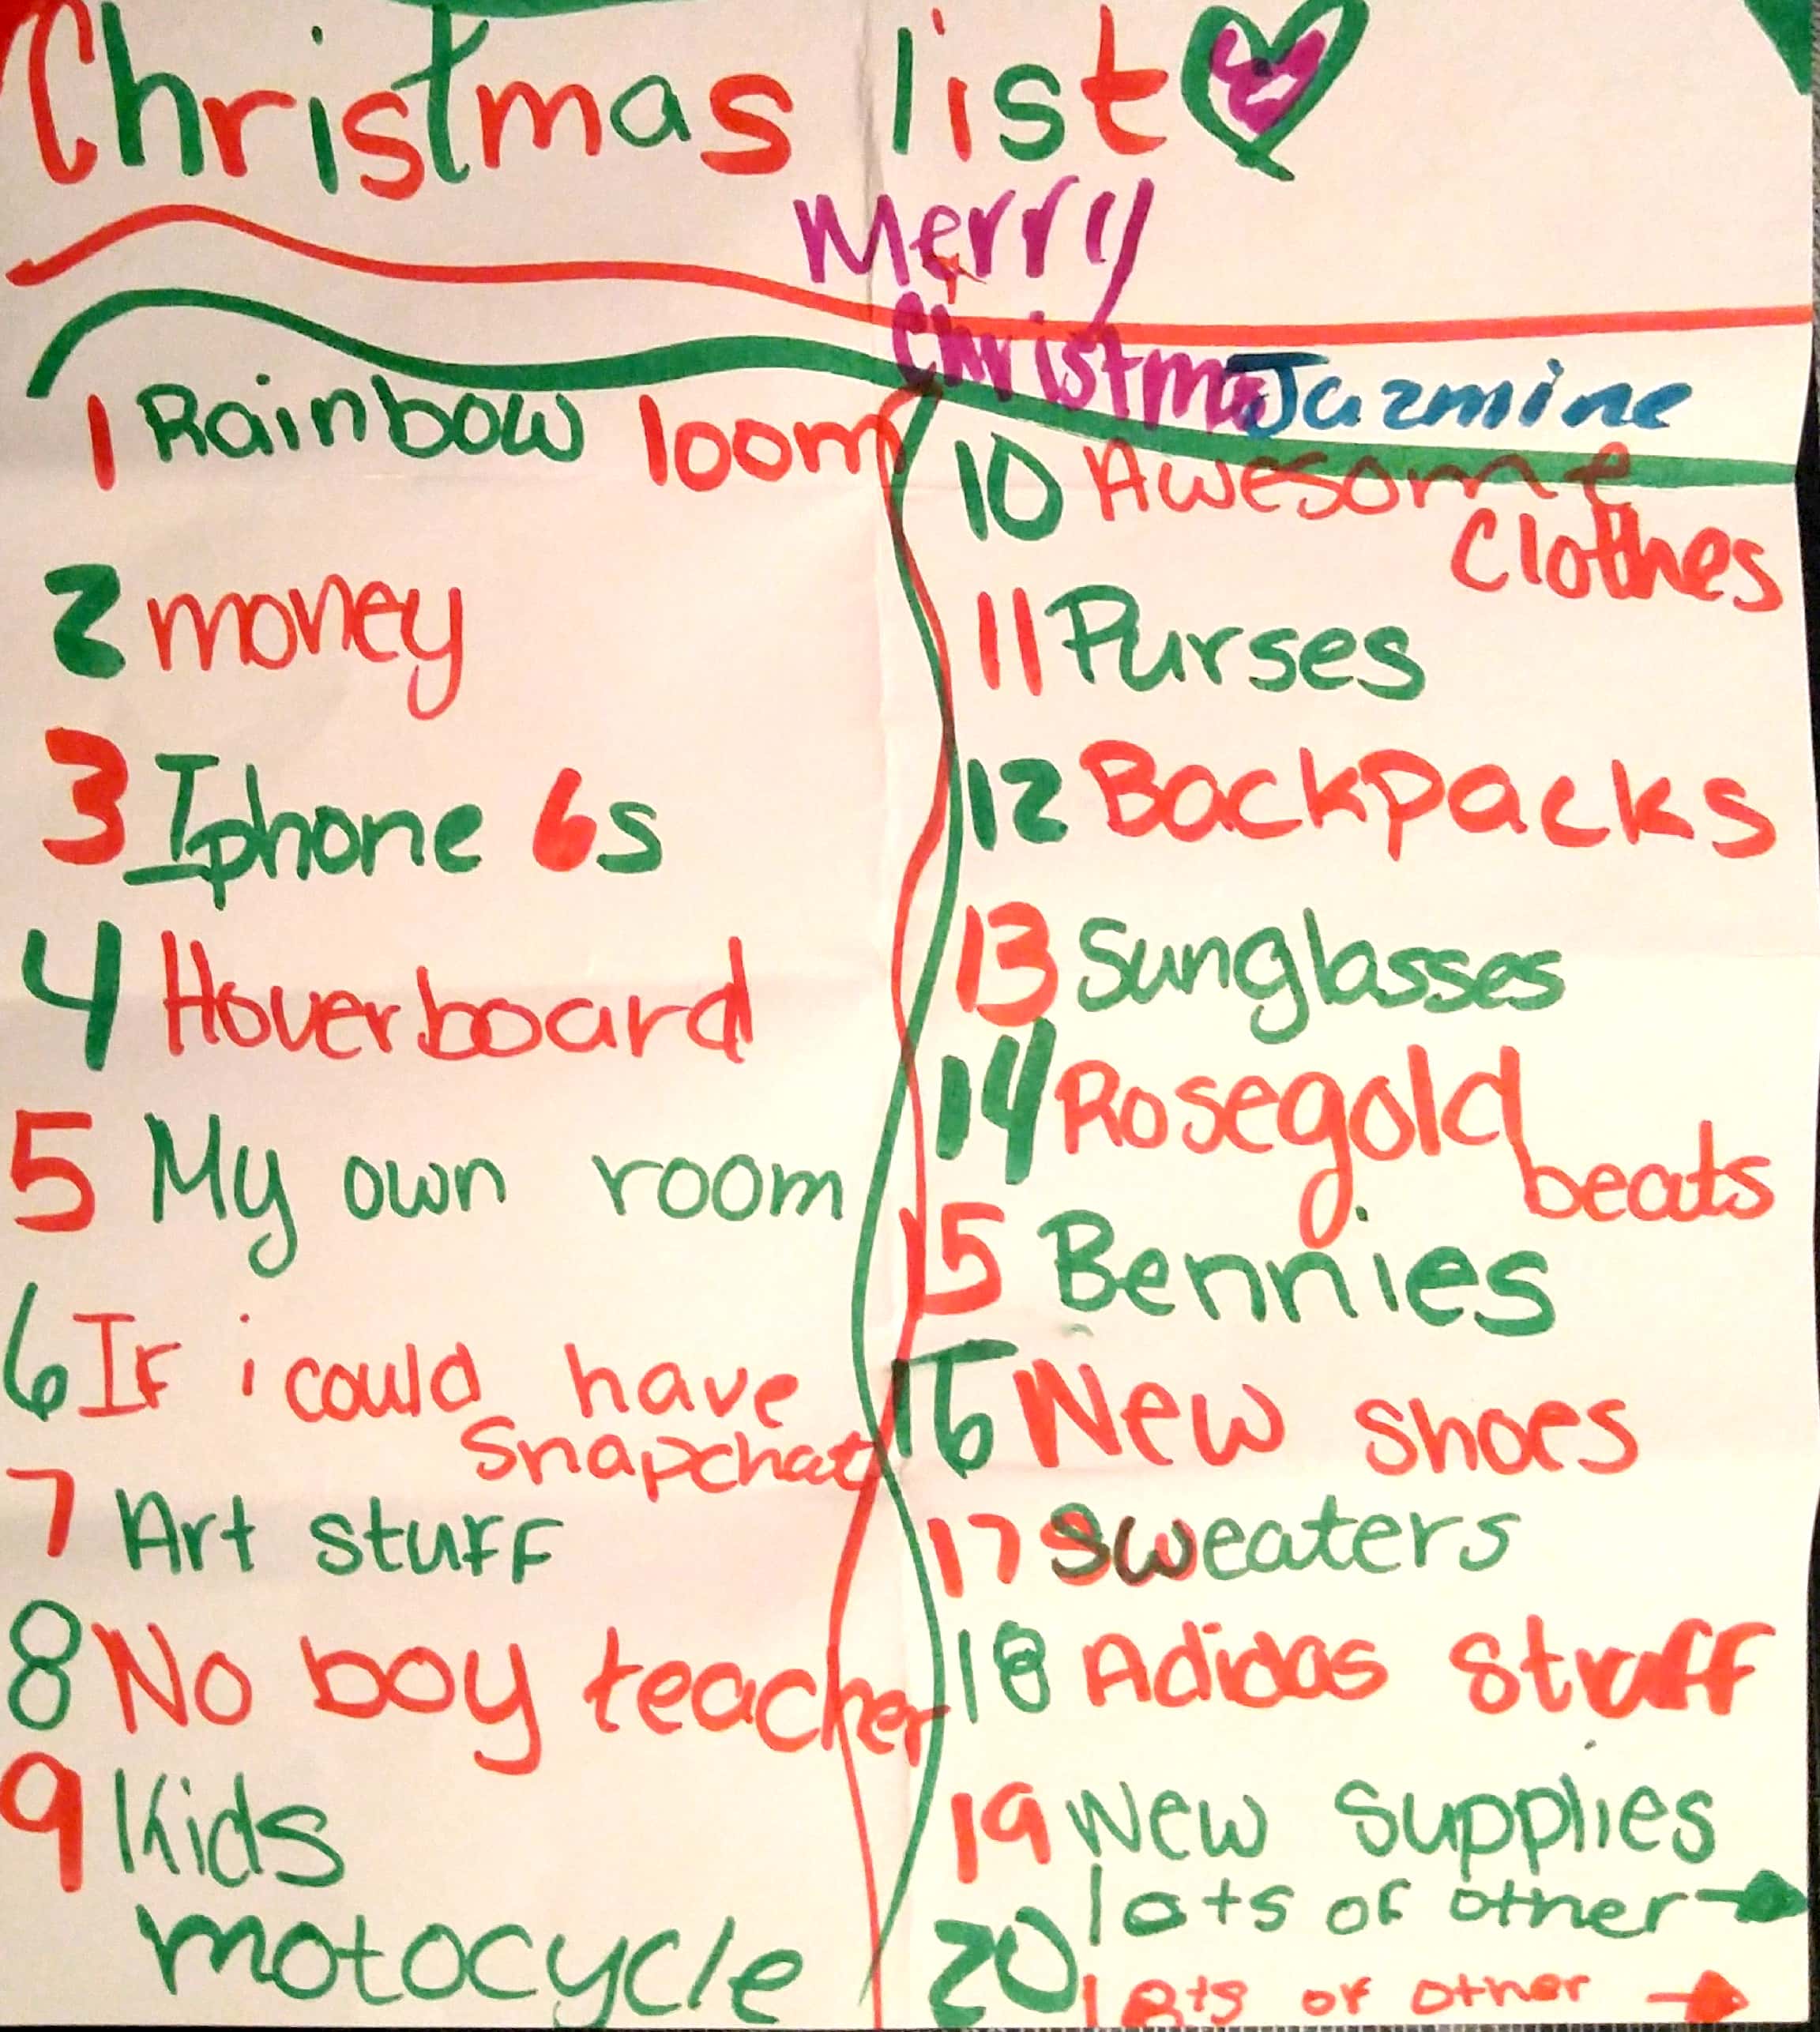 Christmas list
Merry
Christma
Jazmine
1 Rainbow loom
2 money
3 Iphone 6s
4 Hoverboard
5 My own room
6 If i could have
Snapchat
7 Art stuff
8 No boy teacher
9 Kids
motocycle
10 Awesome
Clothes
11 Purses
12 Backpacks
13 Sunglasses
14 Rosegold
beats
15 Bennies
16 New shoes
17 Sweaters
18 Adidas stuff
19 New supplies
20 lots of other
lots of other